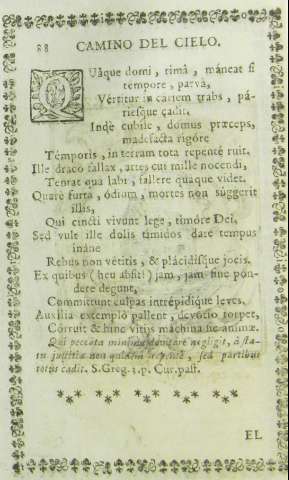 88 CAMINO DEL CIELO.
QUàque domi, rimâ, máneat si
tempore, parva,
Vértitur in cariem trabs, pá-
riesque cadit.
Indè cubile, domus præceps,
madefacta rigóre
Témporis, in terram tota repentè ruit.
Ille draco fallax, artes cui mille nocendi,
Tentat qua labi, fallere quaque videt.
Quare furta, ódium, mortes non súggerit
illis,
Qui cincti vivunt lege, timóre Dei,
Sed vult ille dolis tímidos dare tempus
ináne
Rebus non vétitis, & plácidisque jocis.
Ex quibus (heu absit!) jam, jam sine pón-
dere degunt,
Committunt culpas intrépidique leves,
Auxilia extemplò pallent, devótio torpet,
Córruit & hinc vitijs máchina sic animæ.
Qui peccata minima
negligit, à sta-
tu justitiæ non quidem repentè, sed partibus
totus cadit. S. Greg. 1. p. Cur. past.
EL